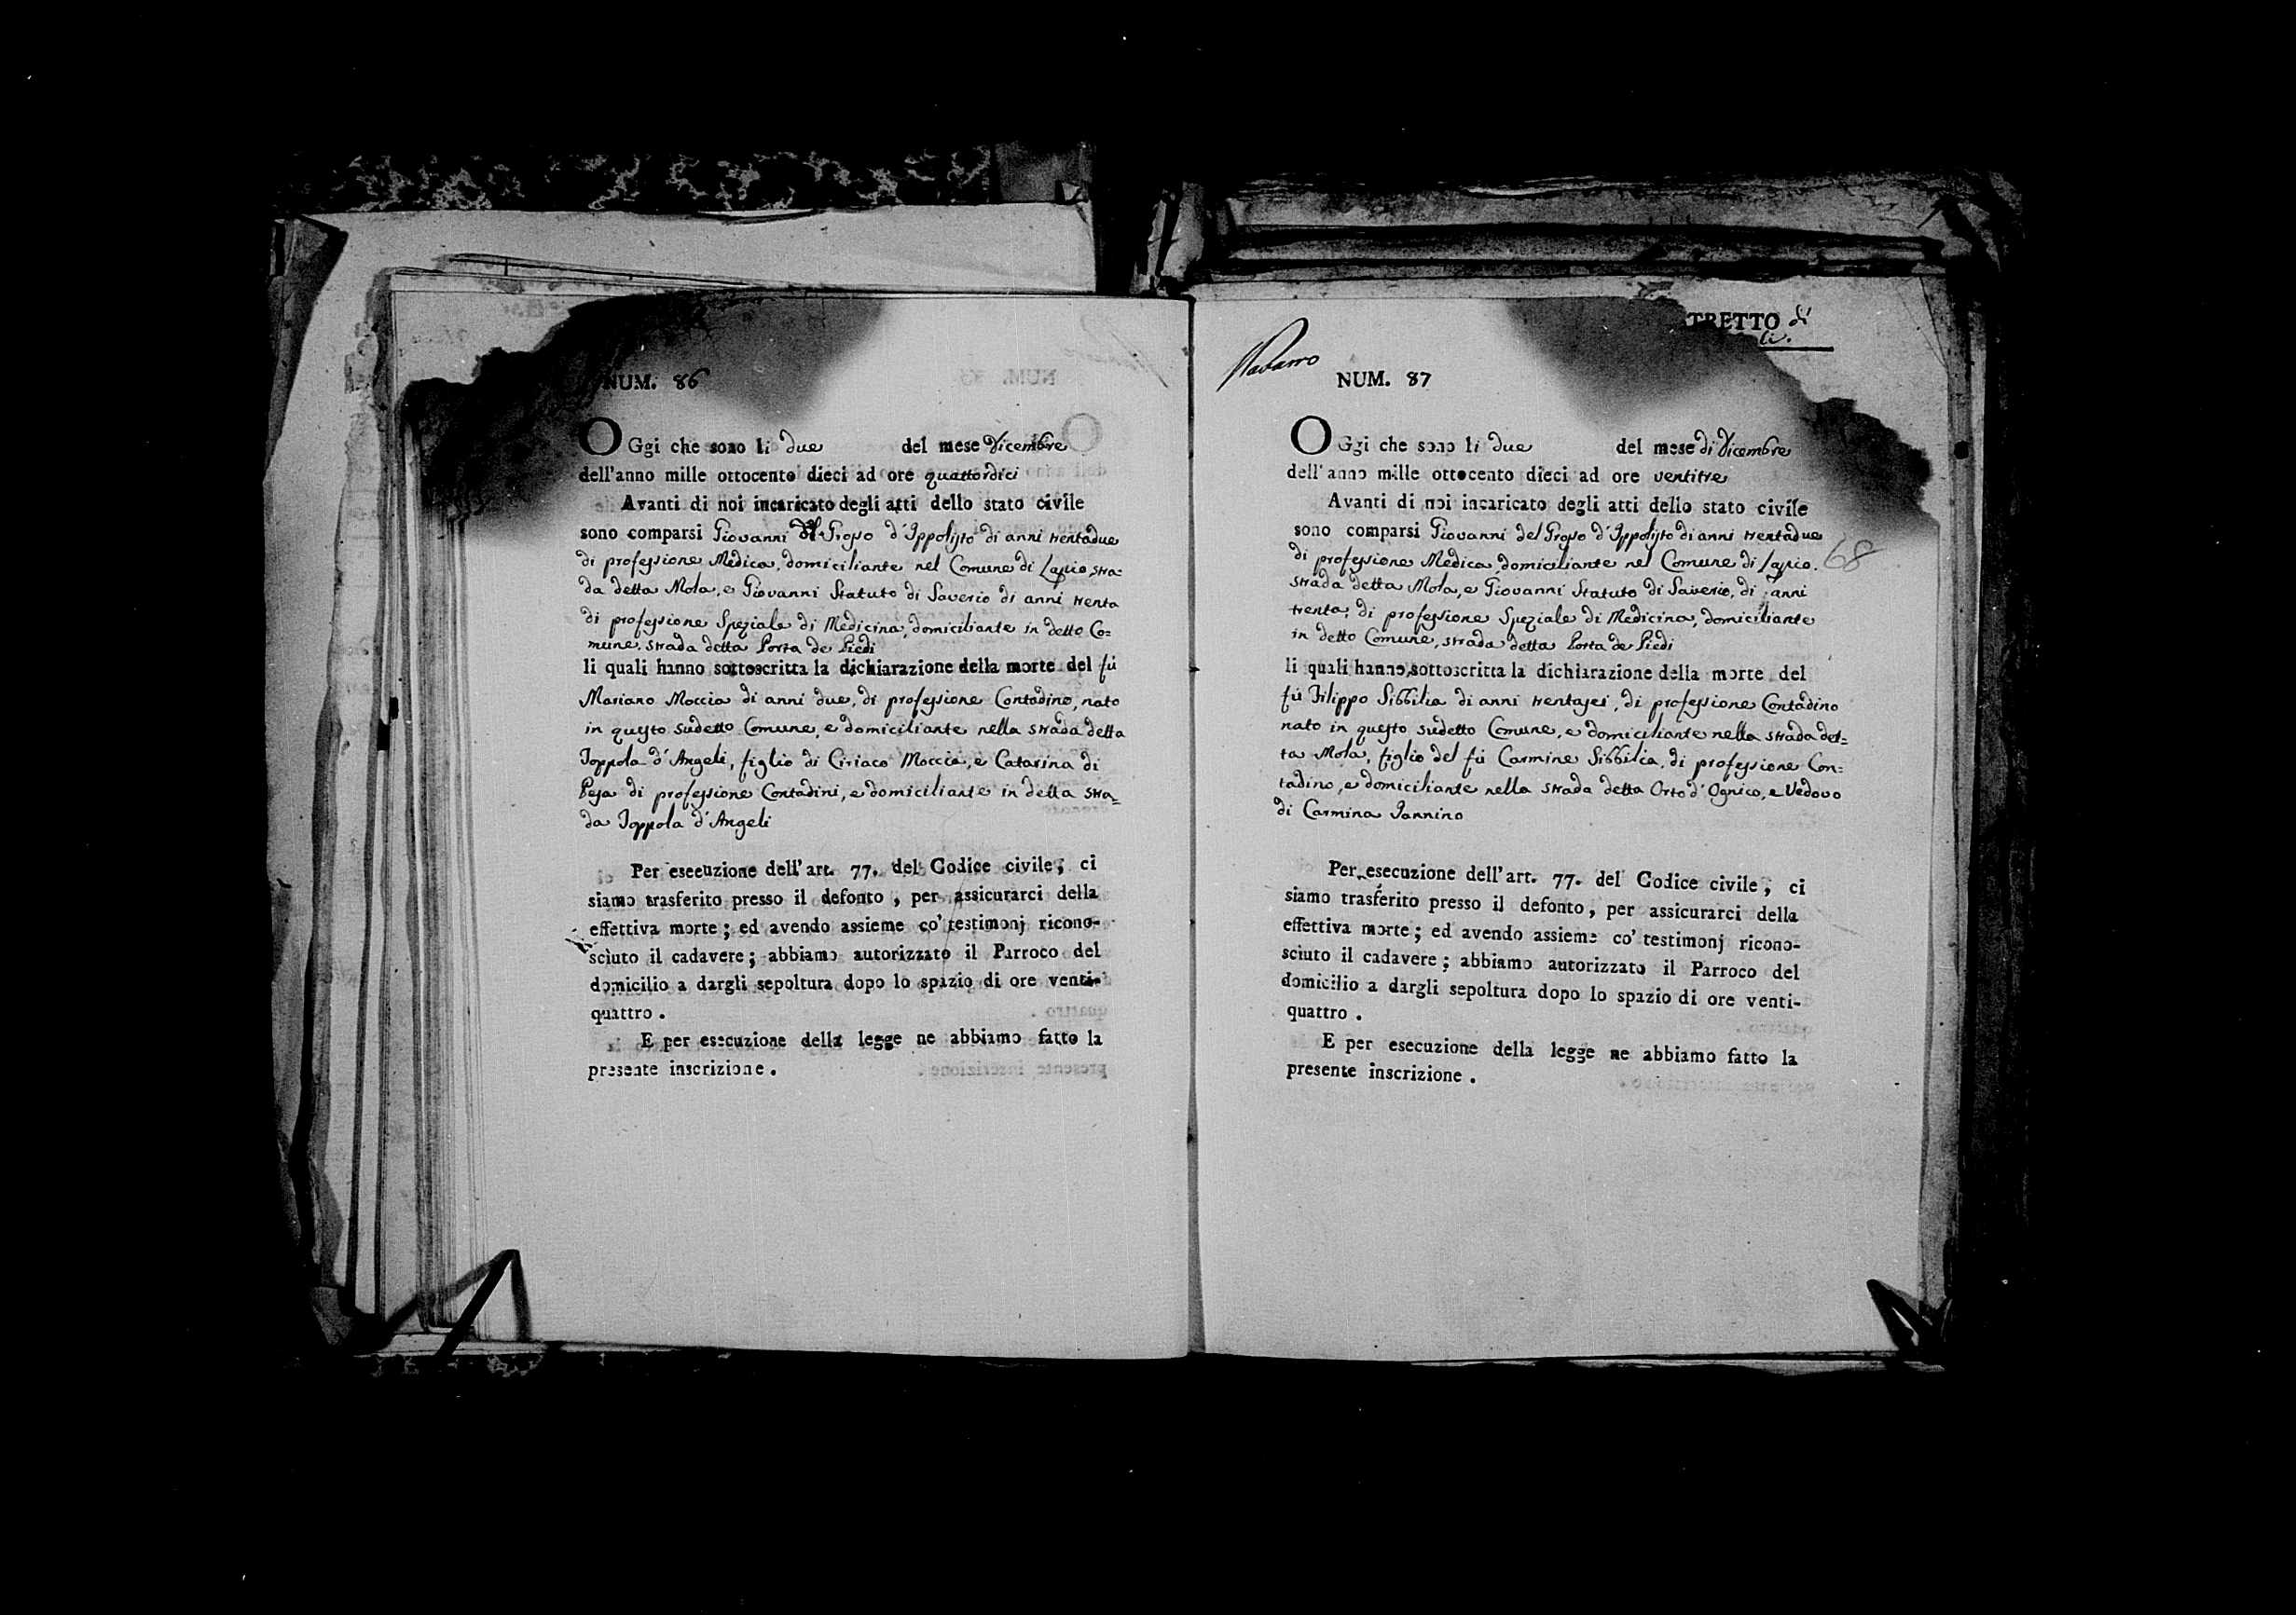 NUM. 86
OGgi che sono li due del mese Dicembre
dell'anno mille ottocento dieci ad ore quattordici
Avanti di noi incaricato degli atti dello stato civile
sono comparsi Giovanni del Grosso d'Ippolisto di anni trentadue
di professione Medica, domiciliante nel Comune di Lapio, stra=
da detta Mola, e Giovanni Statuto di Saverio di anni trenta
di professione Speziale di Medicina, domiciliante in detto Co=
mune, strada detta Porta de Piedi
li quali hanno sottoscritta la dichiarazione della morte del fù
Mariano Moccia di anni due, di professione Contadino, nato
in questo sudetto Comune, e domiciliante nella strada detta
Toppola d'Angeli, figlio di Ciriaco Moccia, e Catarina di
Pesa di professione Contadini, e domiciliante in detta stra=
da Toppola d'Angeli
Per esecuzione dell'art. 77. del Codice civile, ci
siamo trasferito presso il defonto, per assicurarci della
effettiva morte; ed avendo assieme co' testimonj ricono-
sciuto il cadavere; abbiamo autorizzato il Parroco del
domicilio a dargli sepoltura dopo lo spazio di ore venti-
quattro.
E per esecuzione della legge ne abbiamo fatto la
presente inscrizione.
TRETTO di
li.
Navarro
NUM. 87
OGgi che sono li due del mese di Dicembre
dell'anno mille ottocento dieci ad ore ventitre
Avanti di noi incaricato degli atti dello stato civile
sono comparsi Giovanni del Grosso d'Ippolisto di anni trentadue
di professione Medica, domiciliante nel Comune di Lapio.
68
strada detta Mola, e Giovanni Statuto di Saverio, di anni
trenta, di professione Speziale di Medicina, domiciliante
in detto Comune, strada detta Porta de Piedi
li quali hanno sottoscritta la dichiarazione della morte del
fù Filippo Sibbilia di anni trentasei, di professione Contadino
nato in questo sudetto Comune, e domiciliante nella strada det=
ta Mola, figlio del fù Carmine Sibbilia, di professione Con=
tadino, e domiciliante nella strada detta Orto d'Ognico, e Vedovo
di Carmina Iannino
Per esecuzione dell'art. 77. del Codice civile, ci
siamo trasferito presso il defonto, per assicurarci della
effettiva morte; ed avendo assieme co' testimonj ricono-
sciuto il cadavere; abbiamo autorizzato il Parroco del
domicilio a dargli sepoltura dopo lo spazio di ore venti-
quattro.
E per esecuzione della legge ne abbiamo fatto la
presente inscrizione.